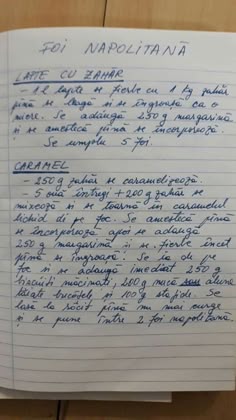 FOI NAPOLITANĂ
LAPTE CU ZAHĂR
- 1 l lapte se fierbe cu 1 kg zahăr
până se leagă și se îngroașă ca o
miere. Se adaugă 250 g margarină
și se amestecă până se încorporează.
Se umplu 5 foi.
CARAMEL
- 250 g zahăr se caramelizează.
- 5 ouă întregi + 200 g zahăr se
mixează și se toarnă în caramelul
lichid de pe foc. Se amestecă până
se încorporează apoi se adaugă
250 g margarină și se fierbe încet
până se îngroașă. Se ia de pe
foc și se adaugă imediat 250 g
biscuiți măcinați, 200 g nucă sau alune
tăiate bucățele și 100 g stafide. Se
lasă la răcit până nu mai curge
și se pune între 2 foi napolitană.